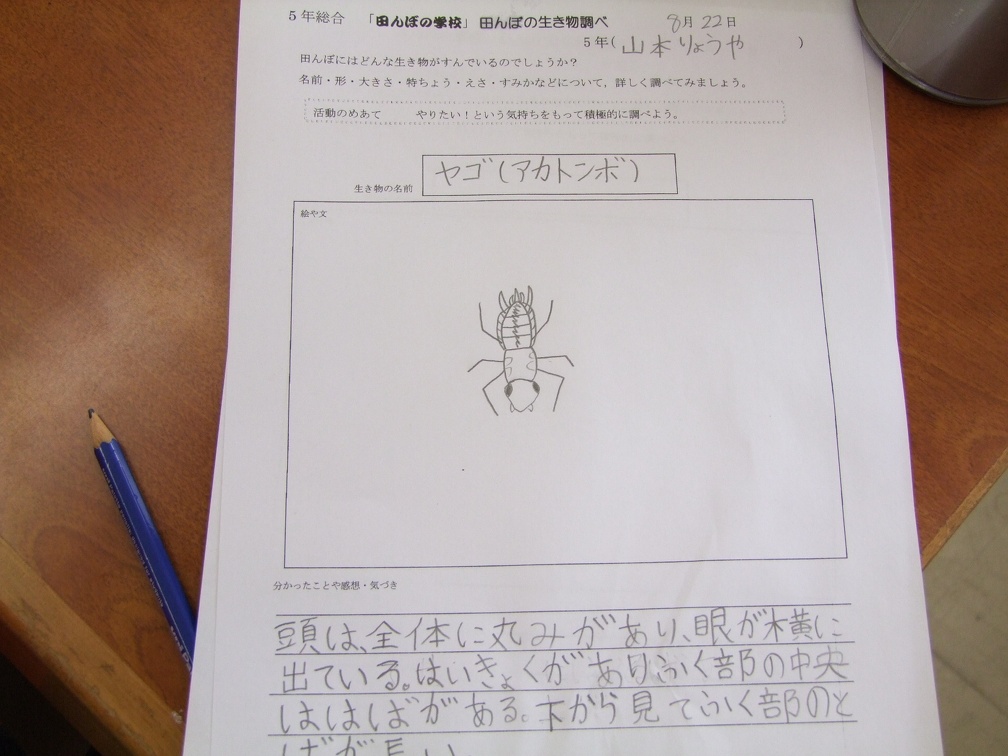 5年総合 「田んぼの学校」田んぼの生き物調べ 8月22日
5年(山本りょうや)
田んぼにはどんな生き物がすんでいるのでしょうか?
名前・形・大きさ・特ちょう・えさ・すみかなどについて,詳しく調べてみましょう。
活動のめあて やりたい!という気持ちをもって積極的に調べよう。
生き物の名前 ヤゴ(アカトンボ)
絵や文
分かったことや感想・気づき
頭は、全体に丸みがあり、眼が横に
出ている。はいきょくがありふく部の中央
ははばがある。上から見てふく部のと
げが長い